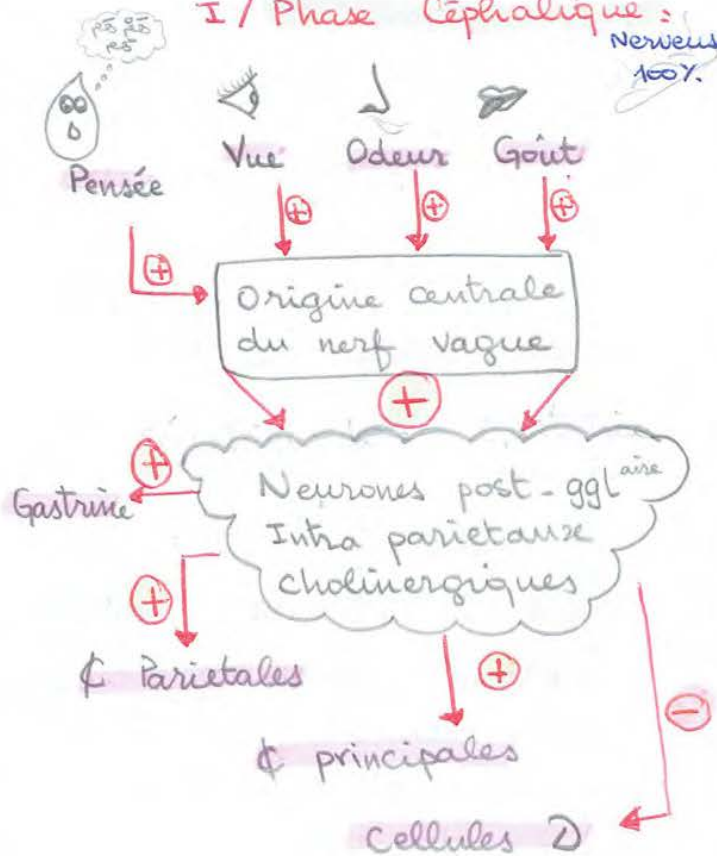 I / Phase Céphalique :
Nerveus
100%.
Pensée
Vue Odeur Goût
+ + + +
Origine centrale
du nerf vague
+
Neurones post-ggl aire
Intra parietaux
cholinergiques
+
Gastrine
+
₵ Parietales
+
₵ principales
−
Cellules D